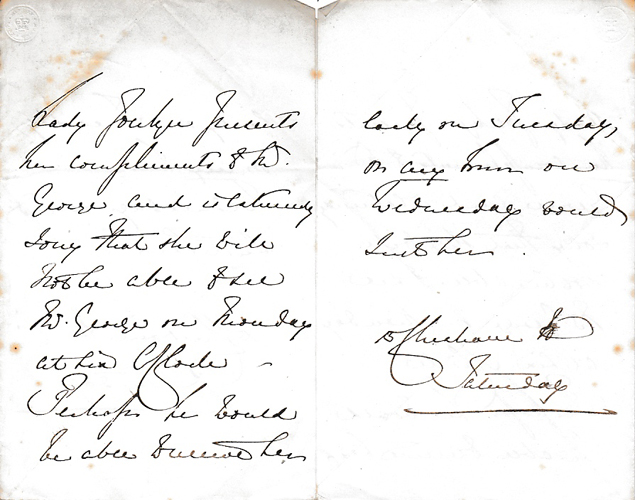 Lady Presents
her compliments to Mr.
George and is extremely
sorry that she will
not be able to see
Mr. George on Monday
at six O'Clock -
Perhaps he would
be able to receive her
early on Tuesday,
or any hour on
Wednesday would
suit her.
Saturday